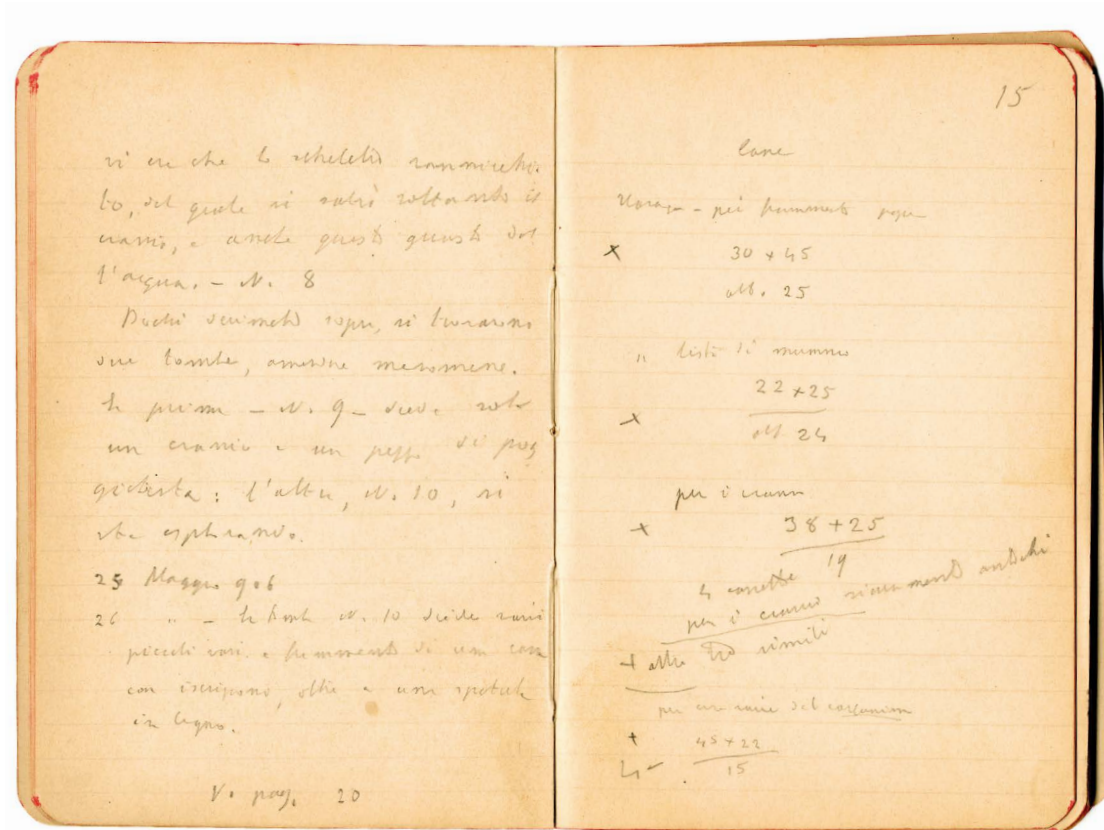 vi era che lo scheletro rannicchia-
to, del quale si salvò soltanto il
cranio, e anche questo guasto dal
l'acqua. – N. 8
Pochi decimetri sopra, si trovarono
due tombe, amendue manomesse.
la prima – N. 9 – diede solo
un cranio e un pezzo di pog
giatesta: l'altra, N. 10, si
sta esplorando.
25 Maggio 906
26 " – la tomba N. 10 diede varii
piccoli vasi e frammenti di una cassa
con iscrizione, oltre a una spatola
in legno.
V. pag. 20
15
Casse
per frammenti
× 30 × 45
alt. 25
" testi di mummie
22 × 25
× alt. 24
per i crani
× 38 × 25
19
4 cassette
per i crani sicuramente antichi
+ altre tre simili
per
+ 45 × 22
15